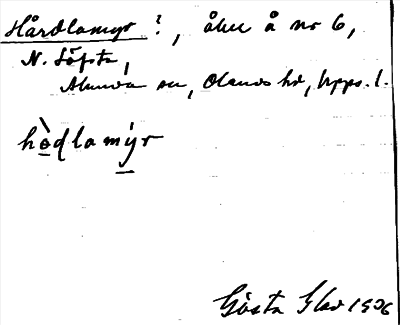 Hårdlamyr ?, åker å nr 6,
N. Löfsta,
Alunda sn, Olands hd, Upps. l.
hòdlamýr
Gösta 1906